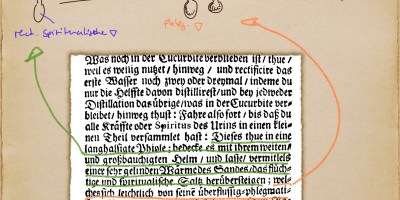 rect. Spiritualische ▽
Phleg. ▽
Was noch in der Cucurbite verblieben ist / thue /
weil es wenig nutzet / hinweg / und rectificire das
erste Wasser noch zwey oder dreymal / indeme du
nur die Helffte davon distillirest / und bey jedweder
Distillation das übrige / was in der Cucurbite ver-
bleibet / hinweg thust: Fahre also fort / bis daß du
alle Kräffte oder Spiritus des Urins in einen klei-
nen Theil versammlet hast: Dieses thue in eine
langhalsigte Phiole; bedecke es mit ihrem weiten
und großbauchigten Helm / und lasse / vermittels
einer sehr gelinden Wärme des Sandes / das flüch-
tige und spiritualische Saltz herübersteigen; wel-
ches sich leichtlich von seine überflüssig-phlegmati-